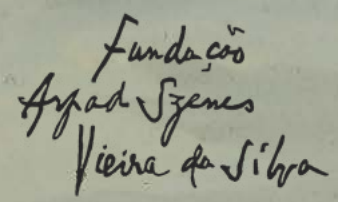 Fundação
Arpad Szenes
Vieira da Silva